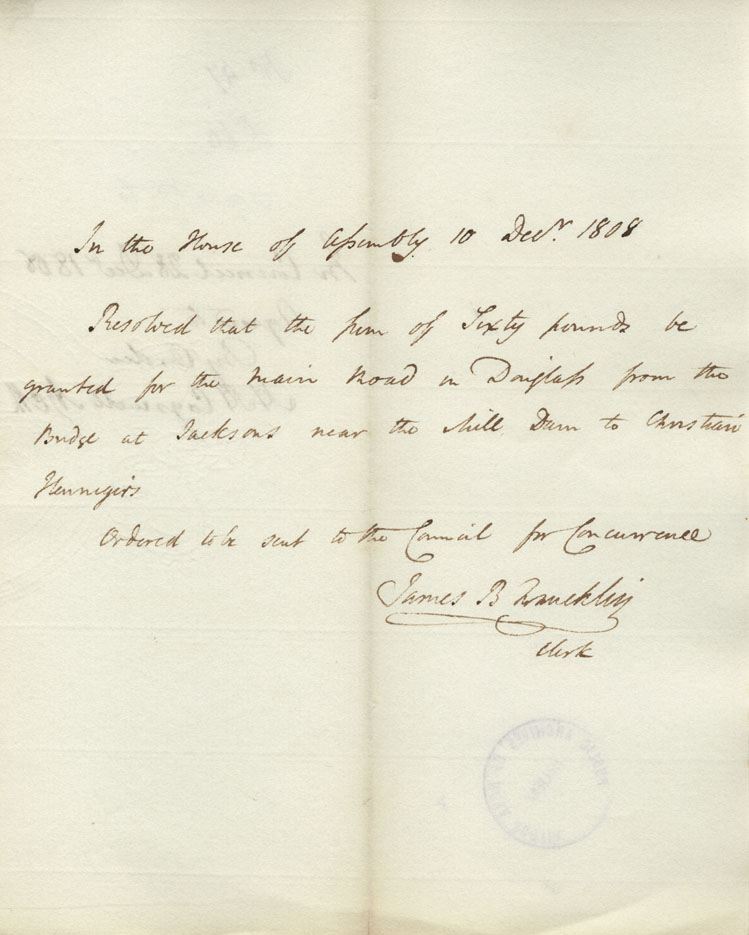 In the House of Assembly 10 Decr. 1808
Resolved that the sum of Sixty pounds be
granted for the main Road in Douglass from the
Bridge at Jacksons near the Mill Dam to Christian
Hennigirs
Ordered to be sent to the Council for Concurrence
James B Francklin
Clerk